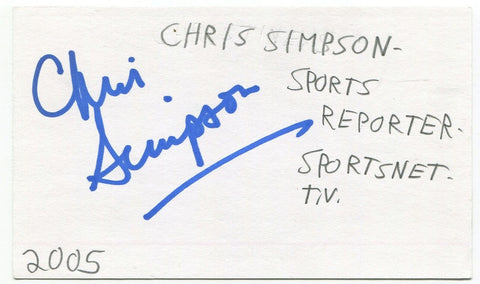 CHRIS SIMPSON-
Chris
Simpson
SPORTS
REPORTER-
SPORTSNET-
T.V.
2005